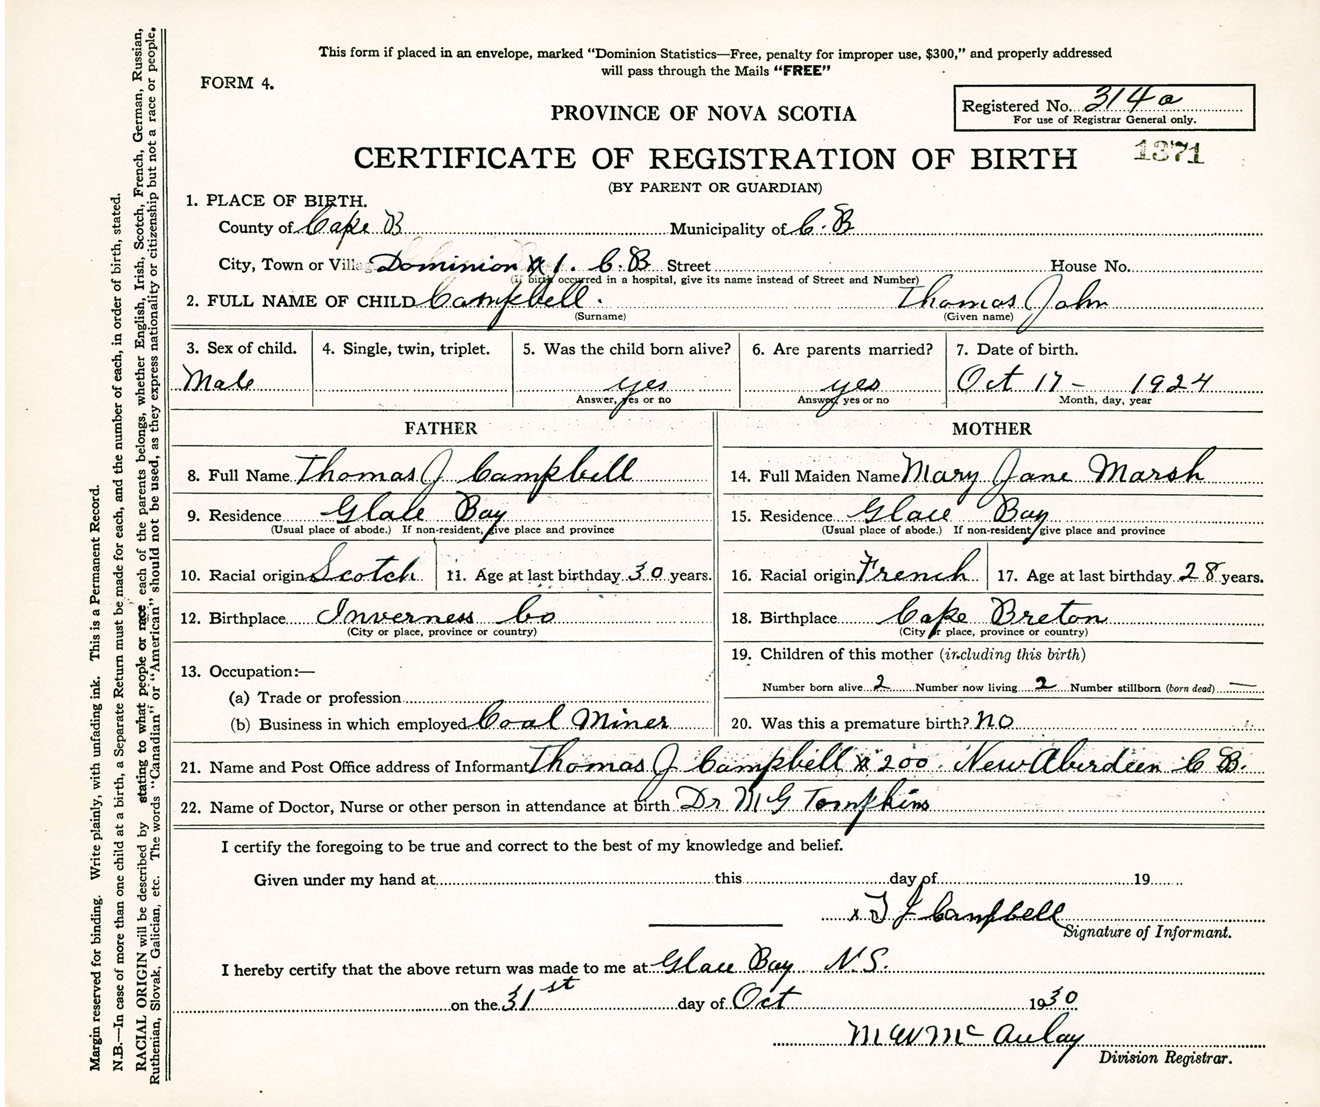 This form if placed in an envelope, marked "Dominion Statistics—Free, penalty for improper use, $300," and properly addressed
will pass through the Mails "FREE"
FORM 4.
Registered No. 314a
For use of Registrar General only.
PROVINCE OF NOVA SCOTIA
1371
CERTIFICATE OF REGISTRATION OF BIRTH
(BY PARENT OR GUARDIAN)
1. PLACE OF BIRTH.
County of Cape B Municipality of C. B
City, Town or Village Dominion # 1. C. B Street House No.
(If birth occurred in a hospital, give its name instead of Street and Number)
2. FULL NAME OF CHILD Campbell. Thomas John
(Surname) (Given name)
3. Sex of child. 4. Single, twin, triplet. 5. Was the child born alive? 6. Are parents married? 7. Date of birth.
Male yes yes Oct 17 - 1924
Answer, yes or no Answer, yes or no Month, day, year
FATHER MOTHER
8. Full Name Thomas J Campbell 14. Full Maiden Name Mary Jane Marsh
9. Residence Glace Bay 15. Residence Glace Bay
(Usual place of abode.) If non-resident, give place and province (Usual place of abode.) If non-resident, give place and province
10. Racial origin Scotch 11. Age at last birthday 30 years. 16. Racial origin French 17. Age at last birthday 28 years.
12. Birthplace Inverness Co 18. Birthplace Cape Breton
(City or place, province or country) (City or place, province or country)
19. Children of this mother (including this birth)
13. Occupation:—
Number born alive 2 Number now living 2 Number stillborn (born dead) —
(a) Trade or profession
(b) Business in which employed Coal Miner 20. Was this a premature birth? no
21. Name and Post Office address of Informant Thomas J Campbell # 200. New Aberdeen C B.
22. Name of Doctor, Nurse or other person in attendance at birth Dr M G Tompkins
I certify the foregoing to be true and correct to the best of my knowledge and belief.
Given under my hand at this day of 19
x T J Campbell
Signature of Informant.
I hereby certify that the above return was made to me at Glace Bay N.S.
on the 31st day of Oct 1930
M W McAulay
Division Registrar.
Margin reserved for binding. Write plainly, with unfading ink. This is a Permanent Record.
N.B.—In case of more than one child at a birth, a Separate Return must be made for each, and the number of each, in order of birth, stated.
RACIAL ORIGIN will be described by stating to what people or race each of the parents belongs, whether English, Irish, Scotch, French, German, Russian,
Ruthenian, Slovak, Galician, etc. The words "Canadian" or "American" should not be used, as they express nationality or citizenship but not a race or people.